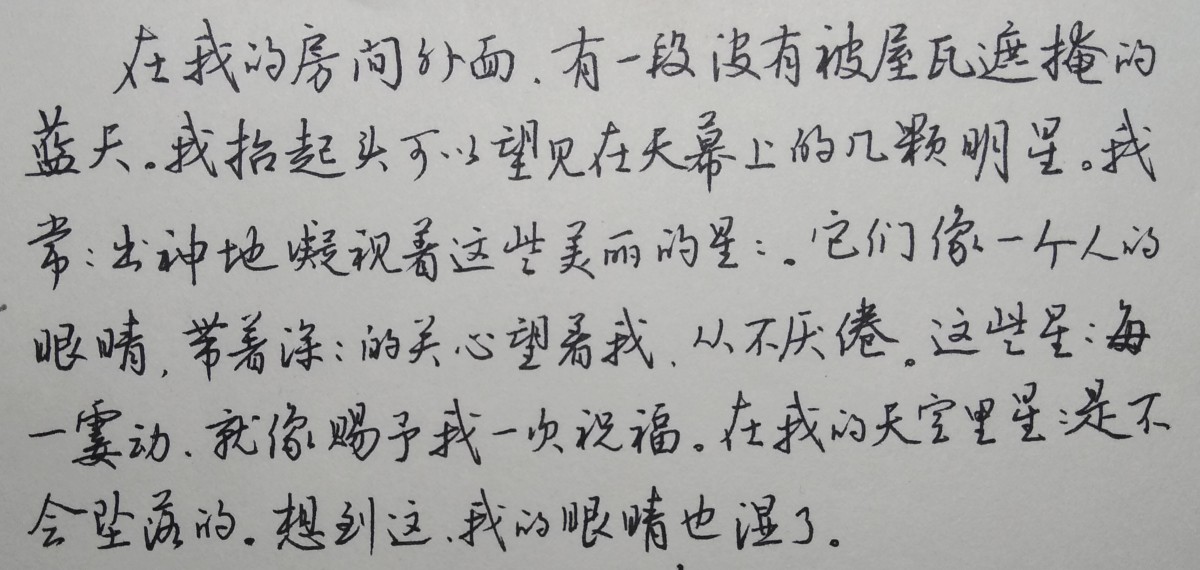 在我的房间外面、有一段没有被屋瓦遮掩的
蓝天。我抬起头可以望见在天幕上的几颗明星。我
常:出神地凝视着这些美丽的星:。它们像一个人的
眼睛,带着深:的关心望着我、从不厌倦。这些星:每
一霎动、就像赐予我一次祝福。在我的天空里星:是不
会坠落的。想到这、我的眼睛也湿了。